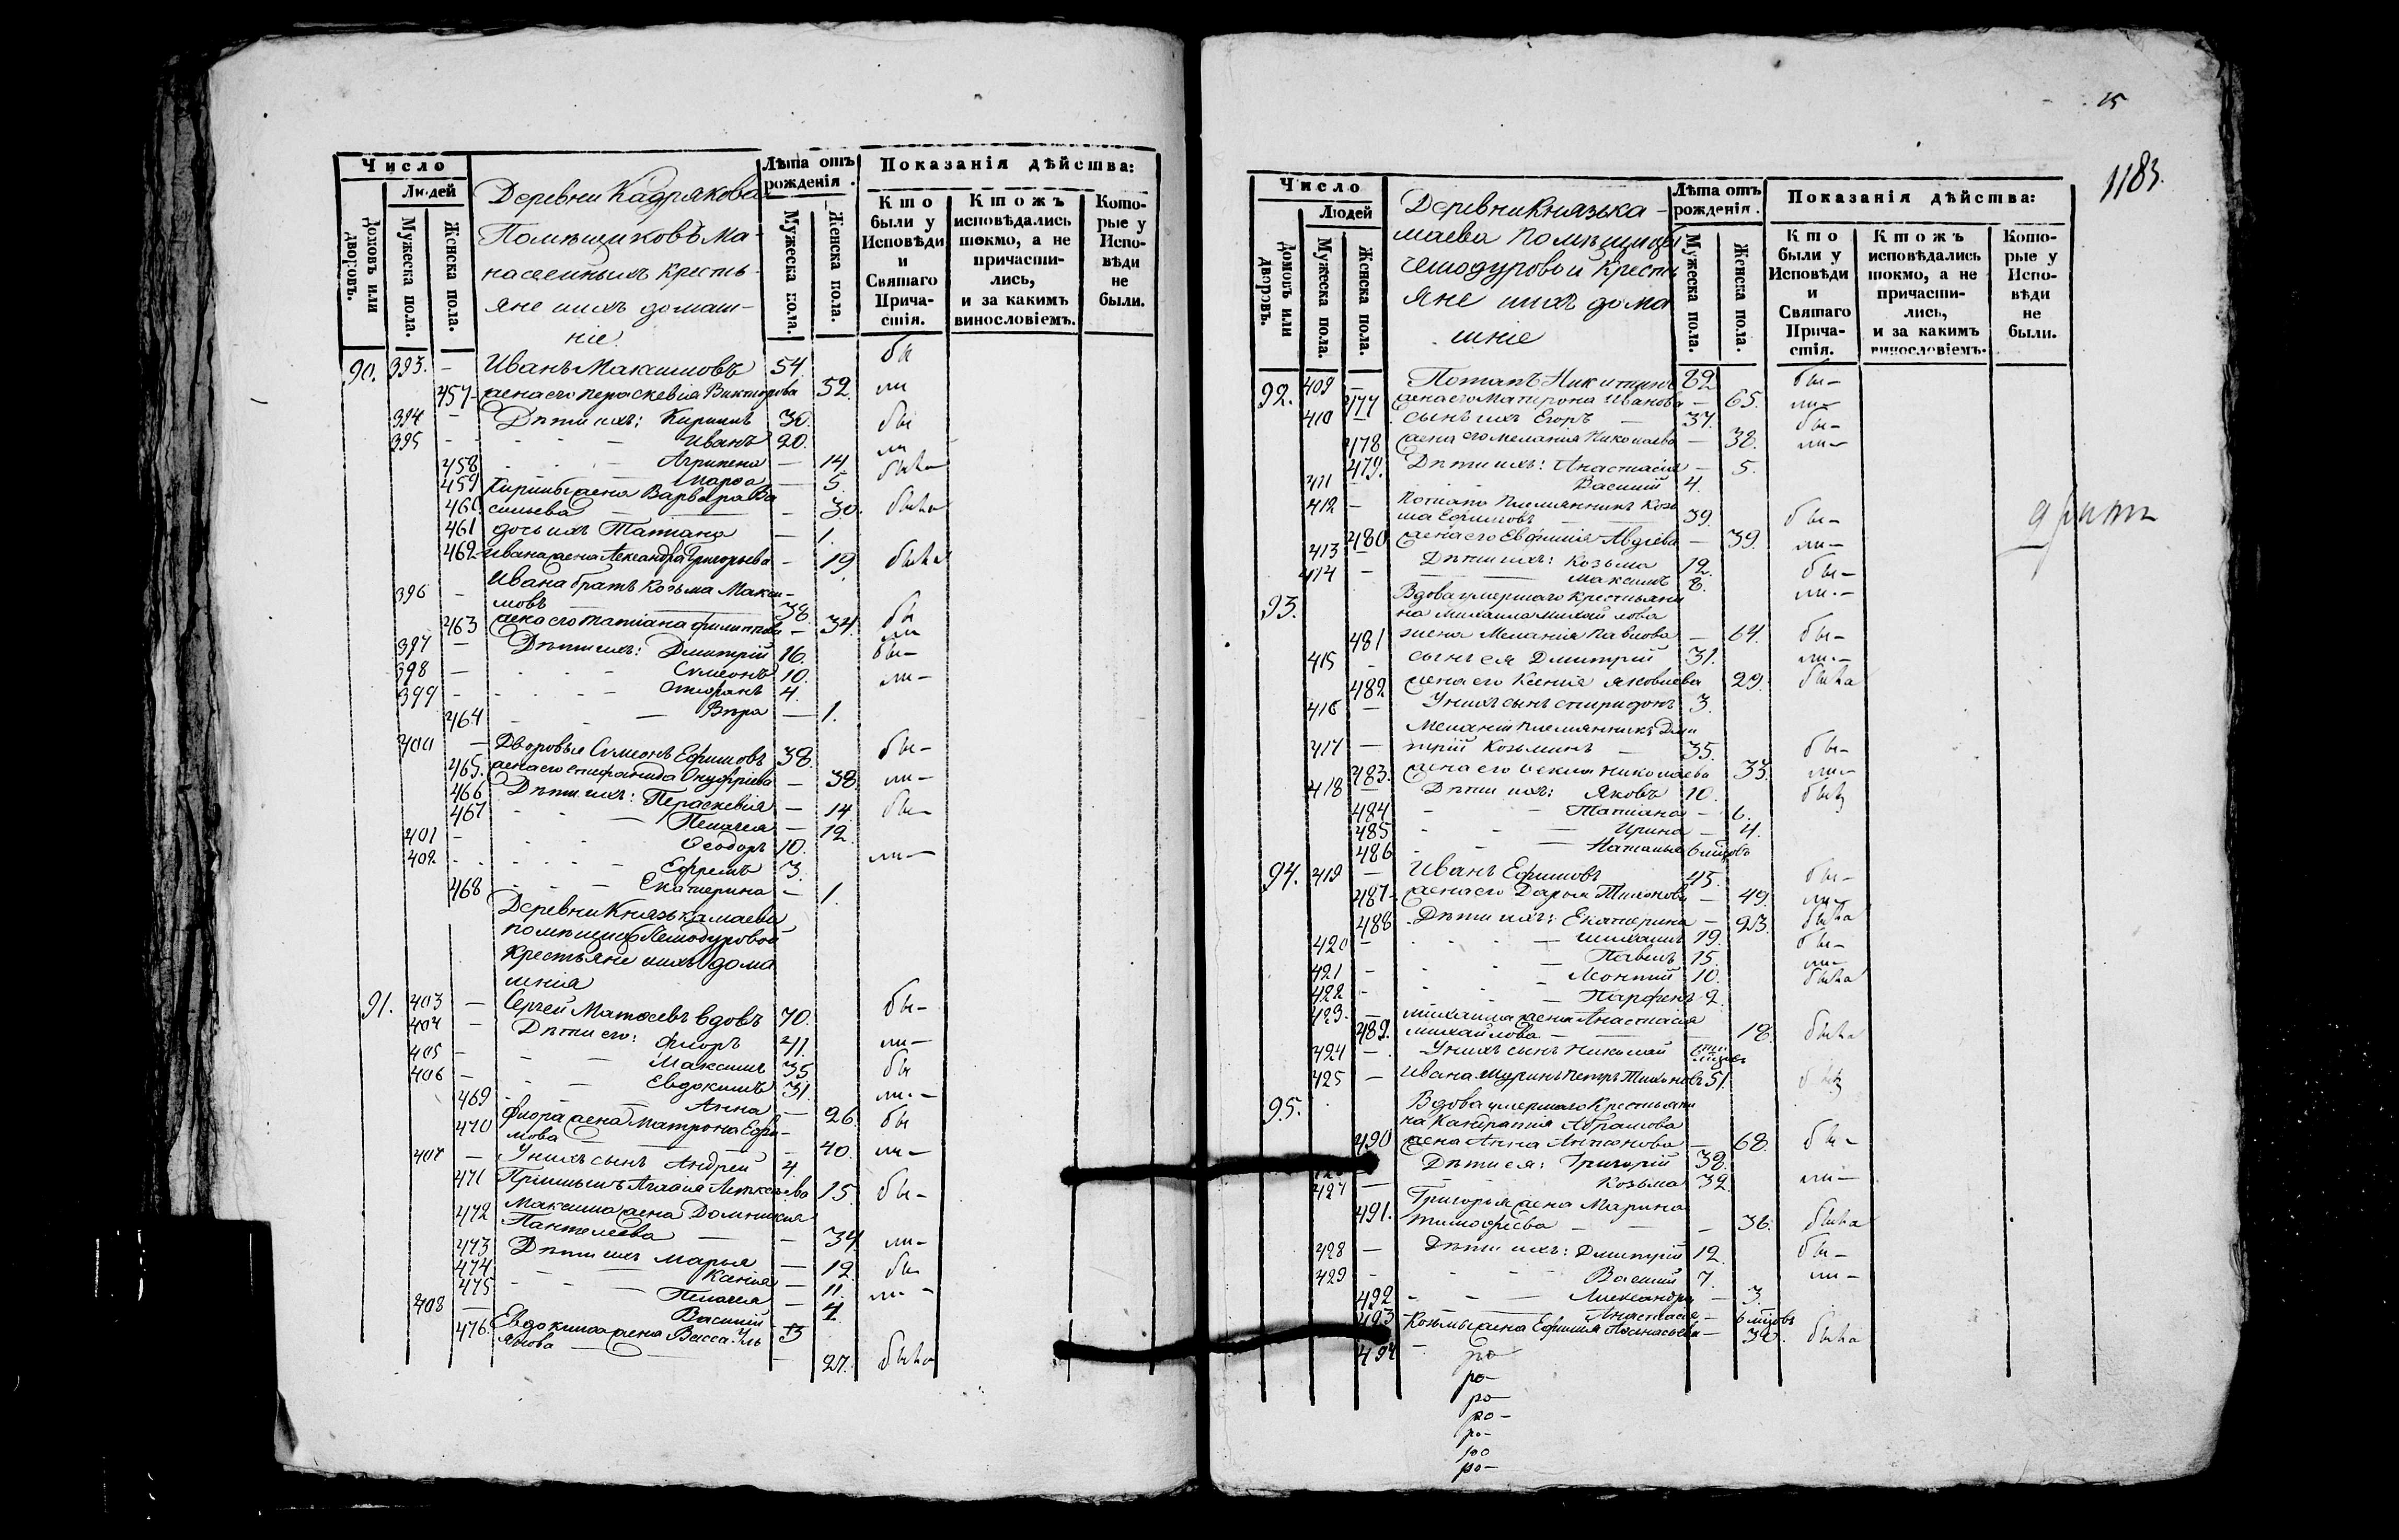 Число
Людей
Домовъ или дворовъ.
Мужеска пола.
Женска пола.
Деревни Кадрякова
Помѣщиковъ Ма-
насеиныхъ кресть-
яне ихъ домаш-
ніе
Лѣта отъ рожденія.
Мужеска пола.
Женска пола.
Показанія дѣйства:
Кто были у Исповѣди и Святаго Прича-стія.
Ктожъ исповѣдались токмо, а не причасти-лись, и за какимъ винословіемъ.
Кото-рые у Испо-вѣди не были.
90. 393. - Иванъ Максимовъ 54 бы
457 жена его Параскевія Викторова 52. ли
394 - Дѣти ихъ: Кирилъ 30. бы
395 - Иванъ 20. ли
458 Агрипена - 14. была
459 Марѳа - 5.
Кирилы жена Варвара Ва
460 сильева - 30. была
461 дочь ихъ Татиана - 1.
462 Ивана жена Александра Григорьева - 19. была
Ивана братъ Козьма Макси-
396 - мовъ 38. бы
463 жена его Татіана Филиппова - 34. ли
397 - Дѣти ихъ: Дмитрій 16. бы-
398 - Симеонъ 10. ли-
399 - Стефанъ 4.
464 Вѣра - 1.
400 - Дворовыя Симеонъ Ефимовъ 38. бы-
465. жена его Епифанида Онуфріева - 38. ли-
466 Дѣти ихъ: Параскевія - 14. бы-
467 Пелагея - 12.
401 - Ѳеодоръ 10. ли-
402 - Ефремъ 3.
468 Екатерина - 1.
Деревни Князькамаева
помѣщицы Чемодуровой
крестьяне ихъ дома
шнія
91. 403 - Сергей Матѳеевъ вдовъ 70. бы-
404 - Дѣти его: Флоръ 41. ли-
405 - Максимъ 35 бы
406 - Евдокимъ 31. ли-
469 Анна - 26.
Флора жена Матрона Ефи- бы
470 мова - 40. ли-
407 - У нихъ сынъ Андрей 4.
471 Агаѳія Алексѣева 15. бы-
Максима жена Домникия
472 Пантелеева - 34 ли-
473 Дѣти ихъ Марья - 12. бы
474 Ксенія - 11. ли-
475 Пелагея - 4.
408 - Василій 3
Евдокима жена Васса Уль
476. янова - 27. была
15
1183.
Число
Людей
Домовъ или дворовъ.
Мужеска пола.
Женска пола.
Деревни Князька-
маева помѣщицы
Чемодуровой кресть
яне ихъ дома
шніе
Лѣта отъ рожденія.
Мужеска пола.
Женска пола.
Показанія дѣйства:
Кто были у Исповѣди и Святаго Прича-стія.
Ктожъ исповѣдались токмо, а не причасти-лись, и за какимъ винословіемъ.
Кото-рые у Испо-вѣди не были.
92. 409 - Потапъ Никитинъ 62 бы-
477 жена его Матрона Иванова - 65. ли-
410 - сынъ ихъ Егоръ - 37. бы-
478 жена его Меланія Николаева - 38. ли-
479. Дѣти ихъ: Анастасія - 5.
411 - Василій 4.
Потапа племянникъ Козь
412 - ма Ефимовъ - 39. бы-
480 жена его Евфимія Авдіева - 39. ли-
413 Дѣти ихъ: Козьма 12. бы-
414 - Максимъ 8. ли-
93. Вдова умершаго крестьяни
на Михаила Михайлова
481 жена Меланія Павлова - 64. бы-
415 - сынъ ея Дмитрій 31. ли-
482 жена его Ксенія Яковлева 29. была
416 - У нихъ сынъ Спиридонъ 3.
Меланіи племянникъ Дми
417 - трій Козьминъ - 35. бы-
483. жена его Ѳекла Николаева 33. ли-
418 - Дѣти ихъ: Яковъ 10. былъ
484 - Татіана - 6.
485 - Ирина - 4.
486 - Наталья 6 мѣцовъ
94. 419 - Иванъ Ефимовъ 45. бы-
487 жена его Дарья Тихонова - 49. ли-
488 Дѣти ихъ: Екатерина - 23. была
420 - Михаилъ 19. бы-
421 - Павелъ 15. ли-
422 - Леонтий 10. была
423. - Парфенъ 2.
Михаила жена Анастасія
489. Михайлова - 18. была
424 - У нихъ сынъ Николай
425 - Ивана шуринъ Петръ Тихоновъ 51. былъ
95. Вдова умершаго крестьяни
на Кандратія Абрамова
490 жена Анна Антонова - 68. бы-
Дѣти ея: Григорій 38.
427 - Козьма 32. ли-
Григорья жена Марина
491. Тимоѳеева - 36. была
428 - Дѣти ихъ: Дмитрій 12. бы-
429 - Василий 7. ли-
492 - Александра - 3.
493 Анастасія - 6 мѣцовъ
494 Козьмы жена Ефимія Аѳанасьева - 30. была
ро
ро-
ро-
ро-
ро-
ро
ро-